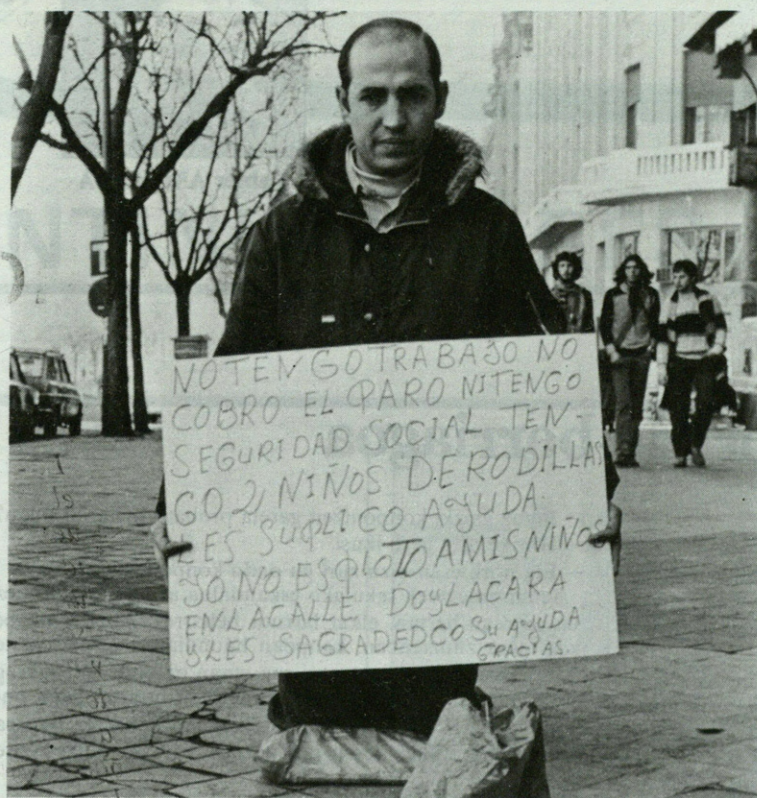 NO TENGO TRABAJO NO
COBRO EL PARO NI TENGO
SEGURIDAD SOCIAL TEN-
GO 2 NIÑOS DE RODILLAS
LES SUPLICO AYUDA
YO NO ESPLOTO A MIS NIÑOS
EN LA CALLE DOY LA CARA
Y LES SAGRADEDCO SU AYUDA
GRACIAS.